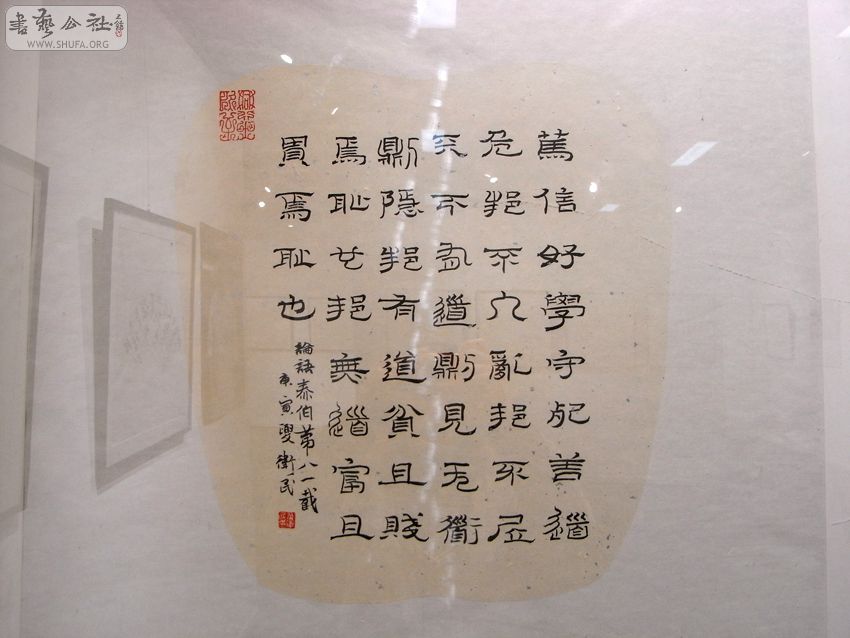 書藝公社
WWW.SHUFA.ORG
篤信好學守死善道
危邦不入亂邦不居
天下有道則見无道
則隱邦有道貧且賤
焉恥也邦無道富且
貴焉恥也
論語泰伯第八一截
庚寅夏衛民